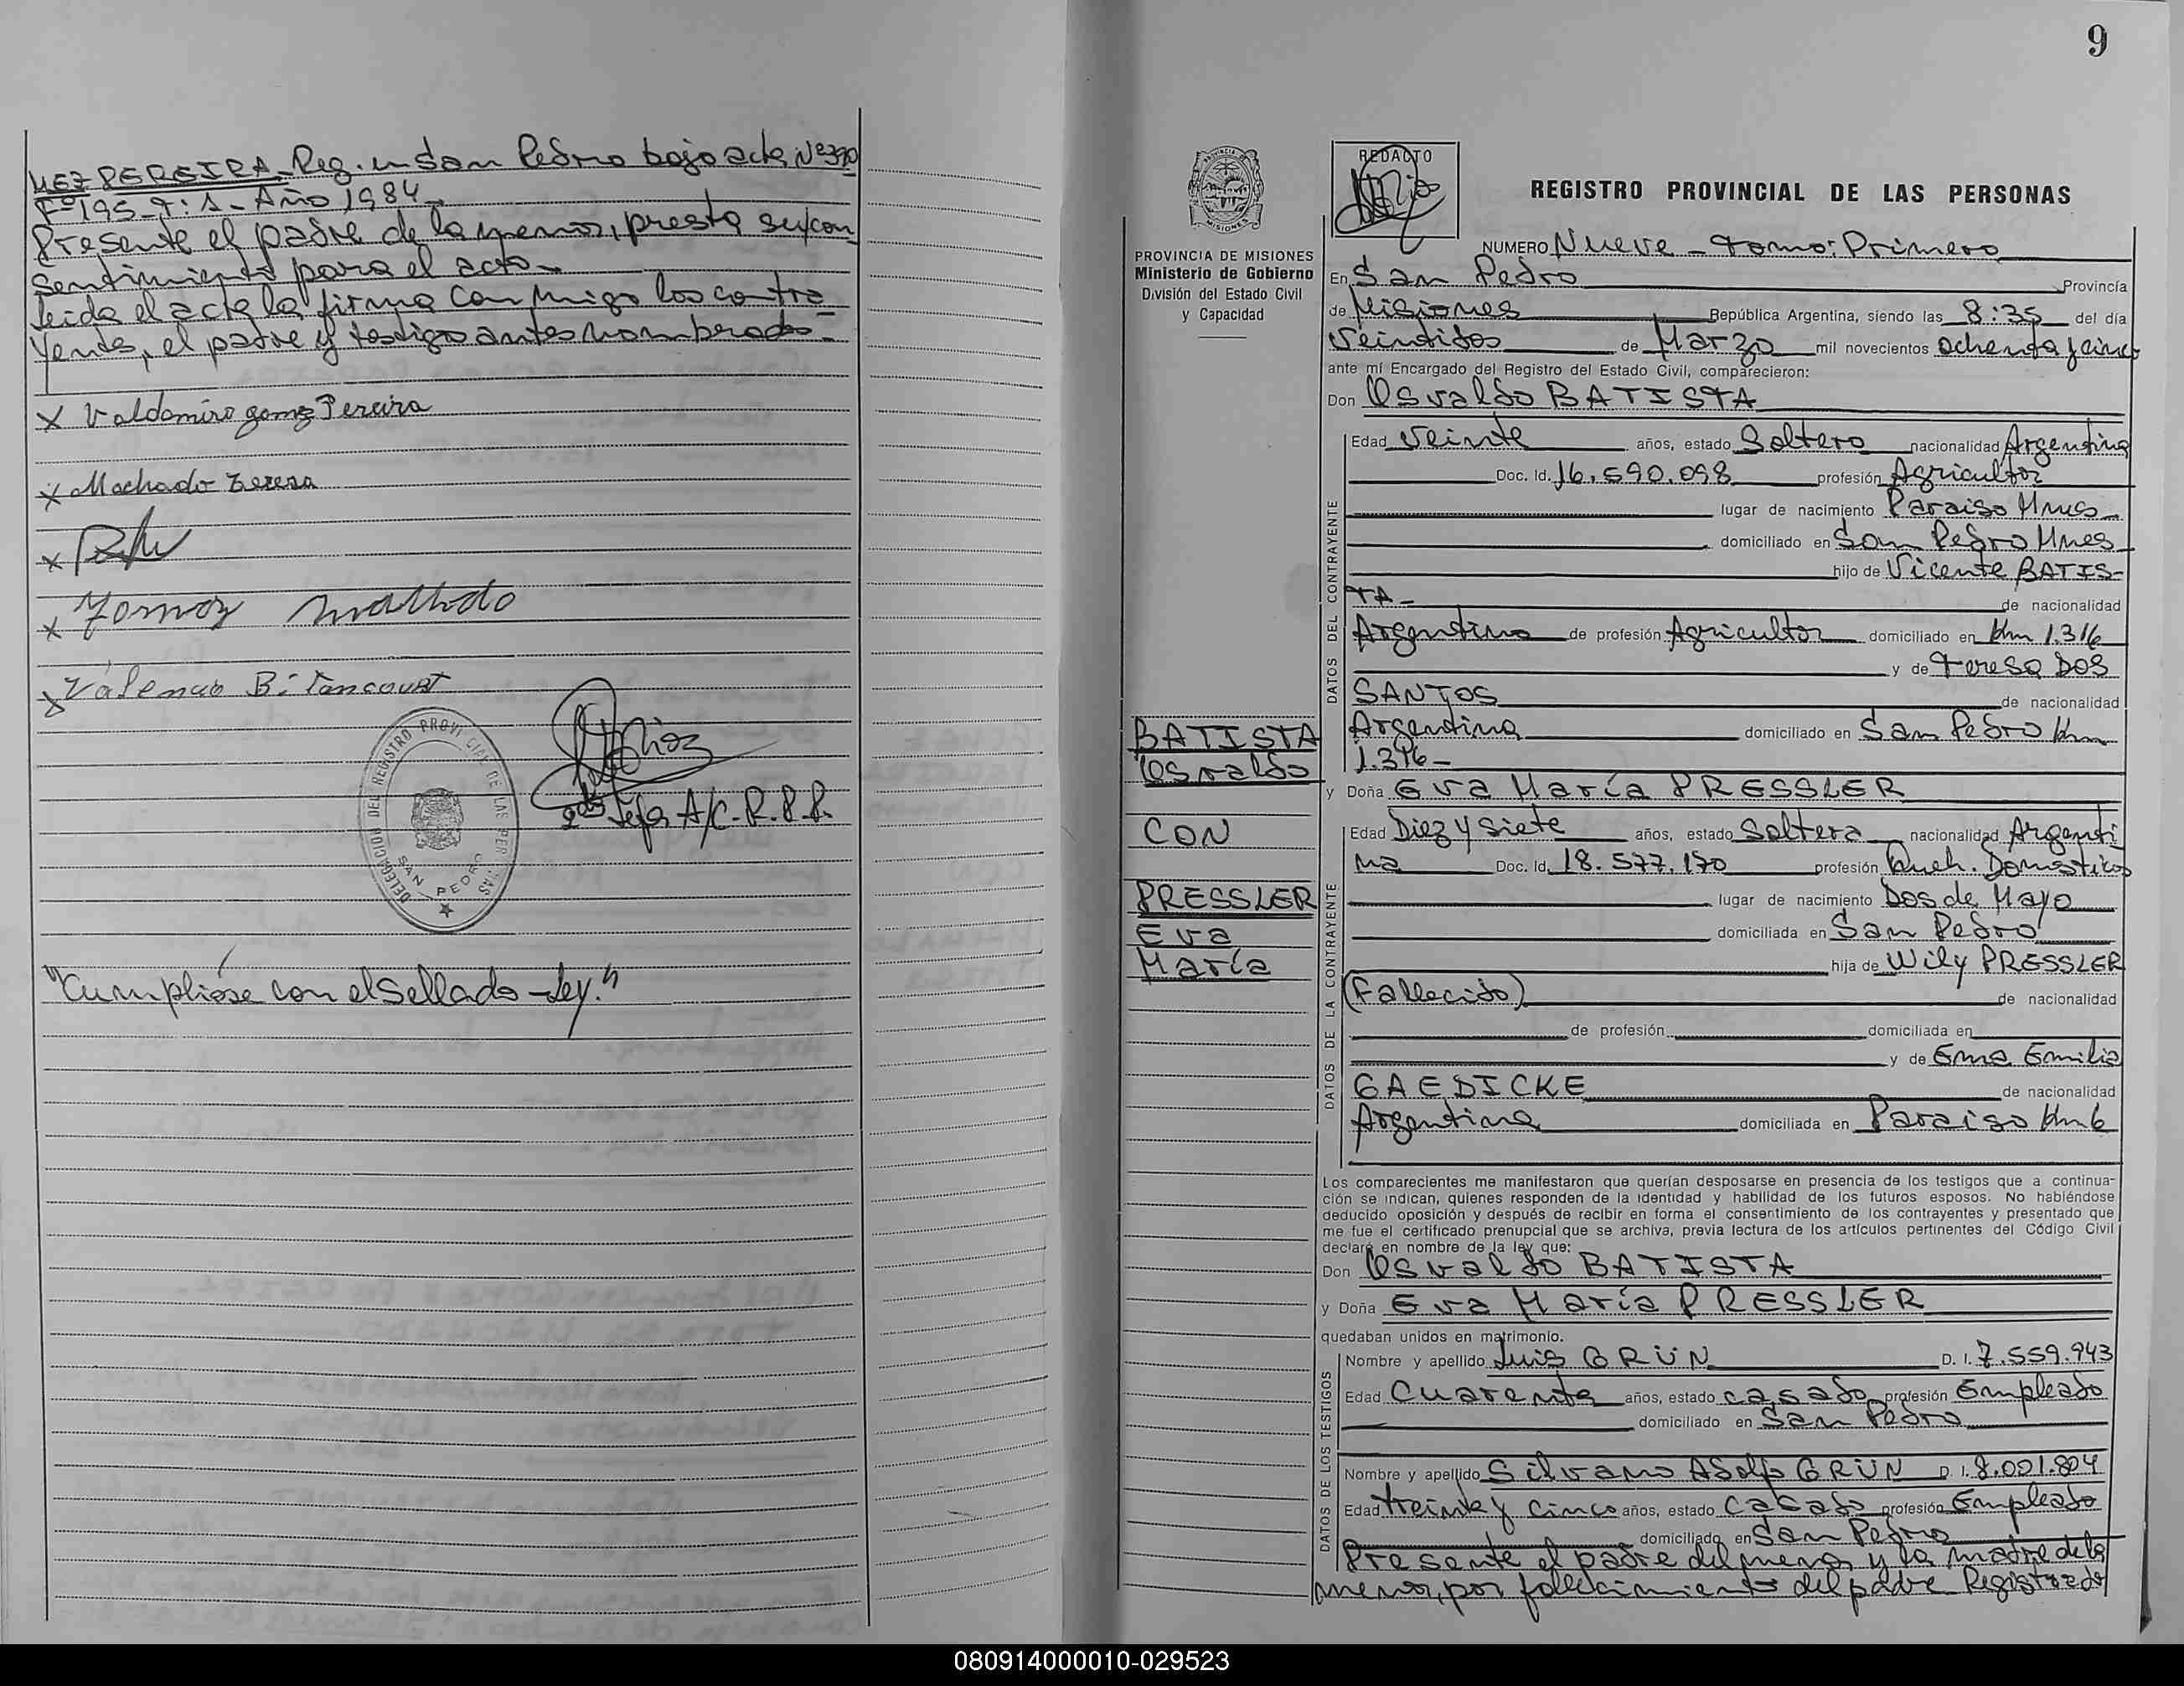 MEZ PEREIRA_Reg. en San Pedro bajo acta Nº390
Fº195_T:1_Año 1984_
Presente el padre de la menor, presta su con
sentimiento para el acto_
Leida el acta la firma con migo los contra_
yentes, el padre y testigo antes nombrados_
X Valdomiro gomez Pereira
X Machado Teresa
X
X Machado
X Valencio Bitancourt
DELEGACION DEL REGISTRO PROVINCIAL DE LAS PERSONAS
SAN PEDRO
Jefa A/C.R.P.P.
"Cumplióse con el sellado-Ley."
9
PROVINCIA DE MISIONES
Ministerio de Gobierno
División del Estado Civil
y Capacidad
BATISTA
Osvaldo
CON
PRESSLER
Eva
María
REDACTO
REGISTRO PROVINCIAL DE LAS PERSONAS
NUMERO Nueve_Tomo: Primero
En San Pedro Provincia
de Misiones República Argentina, siendo las 8:35 del día
Veintidos de Marzo mil novecientos ochenta y cinco
ante mí Encargado del Registro del Estado Civil, comparecieron:
Don Osvaldo BATISTA
DATOS DEL CONTRAYENTE
Edad Veinte años, estado Soltero nacionalidad Argentina
Doc. Id. 16.590.098 profesión Agricultor
lugar de nacimiento Paraiso Mnes
domiciliado en San Pedro Mnes
hijo de Vicente BATIS-
TA_ de nacionalidad
Argentina de profesión Agricultor domiciliado en Km 1.316
y de Teresa DOS
SANTOS de nacionalidad
Argentina domiciliado en San Pedro Km
1.316_
y Doña Eva María PRESSLER
DATOS DE LA CONTRAYENTE
Edad Diez y siete años, estado Soltera nacionalidad Argenti
na Doc. Id. 18.577.170 profesión Queh. Domésticos
lugar de nacimiento Dos de Mayo
domiciliada en San Pedro
hija de Wily PRESSLER
(Fallecido) de nacionalidad
de profesión domiciliada en
y de Ema Emilia
GAEDICKE de nacionalidad
Argentina domiciliada en Paraiso Km 6
Los comparecientes me manifestaron que querían desposarse en presencia de los testigos que a continua-
ción se indican, quienes responden de la identidad y habilidad de los futuros esposos. No habiéndose
deducido oposición y después de recibir en forma el consentimiento de los contrayentes y presentado que
me fue el certificado prenupcial que se archiva, previa lectura de los artículos pertinentes del Código Civil
declaré en nombre de la ley que:
Don Osvaldo BATISTA
y Doña Eva María PRESSLER
quedaban unidos en matrimonio.
DATOS DE LOS TESTIGOS
Nombre y apellido Luis GRÜN D. I. 7.559.943
Edad Cuarenta años, estado casado profesión Empleado
domiciliado en San Pedro
Nombre y apellido Silvano Adolfo GRÜN D. I. 8.001.804
Edad treinta y cinco años, estado casado profesión Empleado
domiciliado en San Pedro
Presente el padre del menor y la madre de la
menor, por fallecimiento del padre Registrado
080914000010-029523